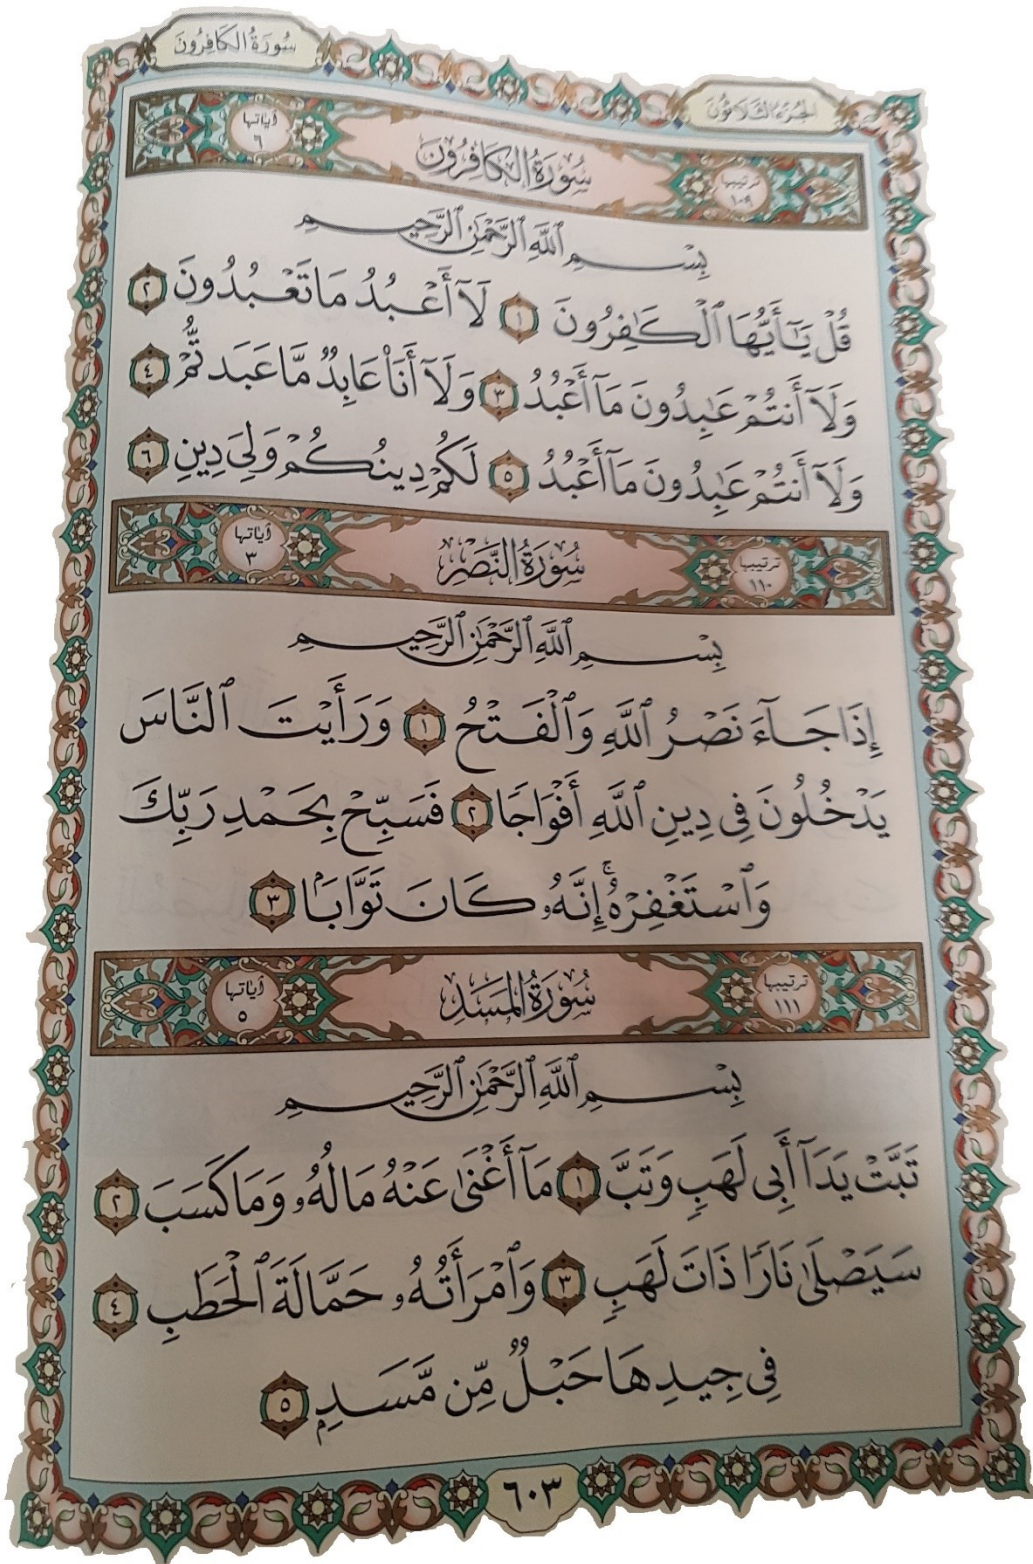 سُورَةُ الكَافِرُون
الجُزءُ الثَّلَاثُونَ
ترتيبها ١٠٩ سُورَةُ الكَافِرُون آياتها ٦
بِسْمِ ٱللَّهِ ٱلرَّحْمَٰنِ ٱلرَّحِيمِ
قُلْ يَٰٓأَيُّهَا ٱلْكَٰفِرُونَ ١ لَآ أَعْبُدُ مَا تَعْبُدُونَ ٢
وَلَآ أَنتُمْ عَٰبِدُونَ مَآ أَعْبُدُ ٣ وَلَآ أَنَا۠ عَابِدٌ مَّا عَبَدتُّمْ ٤
وَلَآ أَنتُمْ عَٰبِدُونَ مَآ أَعْبُدُ ٥ لَكُمْ دِينُكُمْ وَلِىَ دِينِ ٦
ترتيبها ١١٠ سُورَةُ النَّصْرِ آياتها ٣
بِسْمِ ٱللَّهِ ٱلرَّحْمَٰنِ ٱلرَّحِيمِ
إِذَا جَآءَ نَصْرُ ٱللَّهِ وَٱلْفَتْحُ ١ وَرَأَيْتَ ٱلنَّاسَ
يَدْخُلُونَ فِى دِينِ ٱللَّهِ أَفْوَاجًا ٢ فَسَبِّحْ بِحَمْدِ رَبِّكَ
وَٱسْتَغْفِرْهُ ۚ إِنَّهُۥ كَانَ تَوَّابَۢا ٣
ترتيبها ١١١ سُورَةُ المَسَدِ آياتها ٥
بِسْمِ ٱللَّهِ ٱلرَّحْمَٰنِ ٱلرَّحِيمِ
تَبَّتْ يَدَآ أَبِى لَهَبٍ وَتَبَّ ١ مَآ أَغْنَىٰ عَنْهُ مَالُهُۥ وَمَا كَسَبَ ٢
سَيَصْلَىٰ نَارًا ذَاتَ لَهَبٍ ٣ وَٱمْرَأَتُهُۥ حَمَّالَةَ ٱلْحَطَبِ ٤
فِى جِيدِهَا حَبْلٌ مِّن مَّسَدٍۭ ٥
٦٠٣